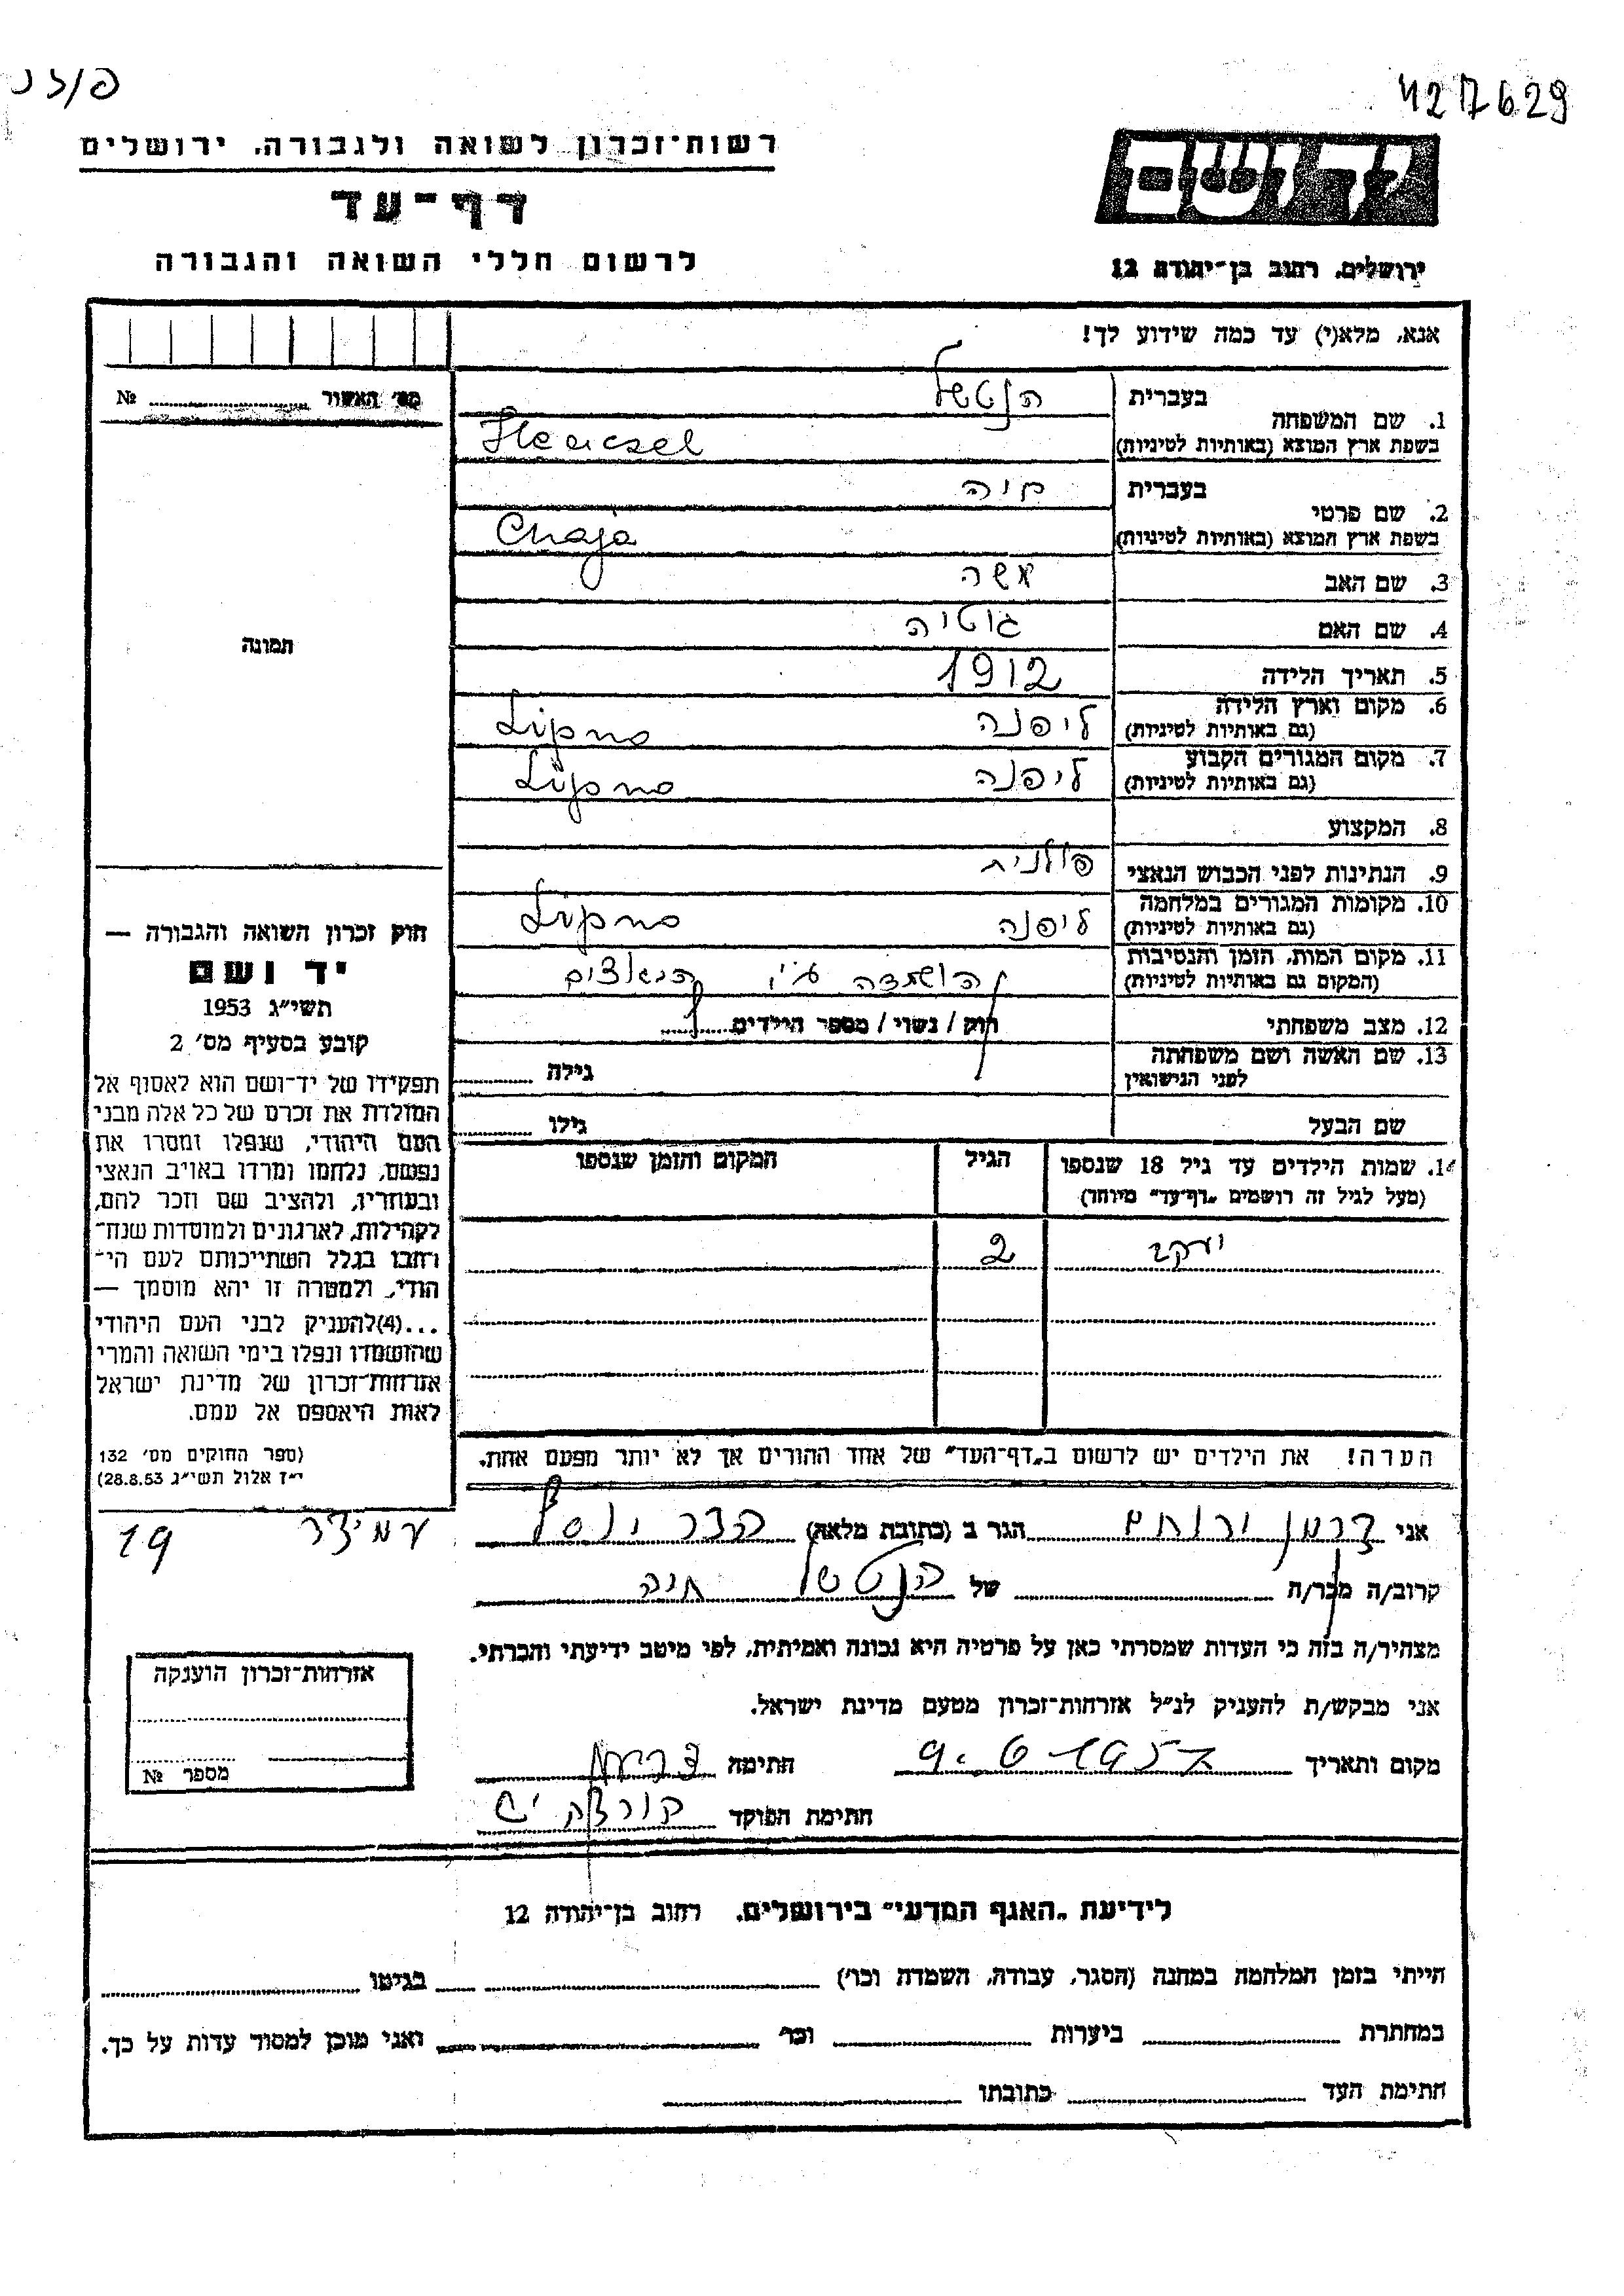 פולני
427629
רשות־זכרון לשואה ולגבורה, ירושלים
דף־עד
לרשום חללי השואה והגבורה
יד ושם
ירושלים, רחוב בן־יהודה 12
אנא, מלא(י) עד כמה שידוע לך!
מס׳ האשור № 
1. שם המשפחה בעברית הנטשל
בשפת ארץ המוצא (באותיות לטיניות)
2. שם פרטי בעברית חיה
בשפת ארץ המוצא (באותיות לטיניות) Chaja
3. שם האב אשר
4. שם האם גוטיה
5. תאריך הלידה 1912
6. מקום וארץ הלידה (גם באותיות לטיניות) ליפנה Lipno
7. מקום המגורים הקבוע (גם באותיות לטיניות) ליפנה Lipno
8. המקצוע
9. הנתינות לפני הכבוש הנאצי פולנית
10. מקומות המגורים במלחמה (גם באותיות לטיניות) ליפנה Lipno
11. מקום המות, הזמן והנסיבות (המקום גם באותיות לטיניות) הושמדה ע״י הנאצים
12. מצב משפחתי רווק / נשוי / מספר הילדים 1
13. שם האשה ושם משפחתה לפני הנישואין גילה
שם הבעל גילו
14. שמות הילדים עד גיל 18 שנספו
(מעל לגיל זה רושמים „דף־עד״ מיוחד)
הגיל
המקום והזמן שנספו
יעקב 2
הערה! את הילדים יש לרשום ב„דף־העד״ של אחד ההורים אך לא יותר מפעם אחת.
תמונה
חוק זכרון השואה והגבורה —
יד ושם
תשי״ג 1953
קובע בסעיף מס׳ 2
תפקידו של יד־ושם הוא לאסוף אל
המולדת את זכרם של כל אלה מבני
העם היהודי, שנפלו ומסרו את
נפשם, נלחמו ומרדו באויב הנאצי
ובעוזריו, ולהציב שם וזכר להם,
לקהילות, לארגונים ולמוסדות שנח־
רבו בגלל השתייכותם לעם הי־
הודי, ולמטרה זו יהא מוסמך —
...(4)להעניק לבני העם היהודי
שהושמדו ונפלו בימי השואה והמרי
אזרחות־זכרון של מדינת ישראל
לאות היאספם אל עמם.
(ספר החוקים מס׳ 132
י״ז אלול תשי״ג 28.8.53)
אני ירוחם הגר ב (כתובת מלאה) יוסף
עמידר 19
קרוב/ה מכר/ה של הנטשל חיה
מצהיר/ה בזה כי העדות שמסרתי כאן על פרטיה היא נכונה ואמיתית, לפי מיטב ידיעתי והכרתי.
אני מבקש/ת להעניק לנ״ל אזרחות־זכרון מטעם מדינת ישראל.
מקום ותאריך 9. 6 1957 חתימה
חתימת הפוקד
אזרחות־זכרון הוענקה
מספר №
לידיעת „האגף המדעי״ בירושלים, רחוב בן־יהודה 12
הייתי בזמן המלחמה במחנה (הסגר, עבודה, השמדה וכו׳) בגיטו
במחתרת ביערות וכו׳ ואני מוכן למסור עדות על כך.
חתימת העד כתובתו